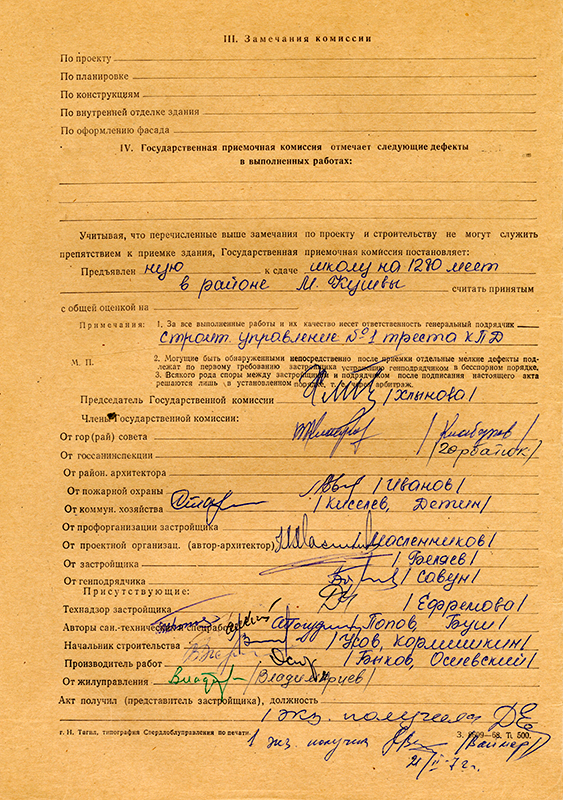 III. Замечания комиссии
По проекту
По планировке
По конструкциям
По внутренней отделке здания
По оформлению фасада
IV. Государственная приемочная комиссия отмечает следующие дефекты
в выполненных работах:
Учитывая, что перечисленные выше замечания по проекту и строительству не могут служить
препятствием к приемке здания, Государственная приемочная комиссия постановляет:
Предъявлен ную к сдаче школу на 1280 мест
в районе М. Кушвы считать принятым
с общей оценкой на
Примечания: 1. За все выполненные работы и их качество несет ответственность генеральный подрядчик
строит. управление №1 треста КПД
М. П. 2. Могущие быть обнаруженными непосредственно после приемки отдельные мелкие дефекты под-
лежат по первому требованию застройщика устранению генподрядчиком в бесспорном порядке.
3. Всякого рода споры между застройщиком и подрядчиком после подписания настоящего акта
решаются лишь в установленном порядке, т. е. через арбитраж.
Председатель Государственной комиссии /Хлынова/
Члены Государственной комиссии:
От гор(рай) совета
От госсанинспекции /Горбатюк/
От район. архитектора
От пожарной охраны /Иванов/
От коммун. хозяйства /Киселев, Детин/
От профорганизации застройщика
От проектной организац. (автор-архитектор) /Масленников/
От застройщика /Беляев/
От генподрядчика /Савун/
Присутствующие:
Технадзор застройщика /Ефремова/
Авторы сан.-техническ. спецработ /Попов, Буш/
Начальник строительства /Усов, Кормишкин/
Производитель работ /Быков, Осиевский/
От жилуправления /Владимриев/
Акт получил (представитель застройщика), должность
1 экз. получила
г. Н. Тагил, типография Свердлоблуправления по печати. З. 6699—68. Т. 500.
1 экз. получил /Вайнер/